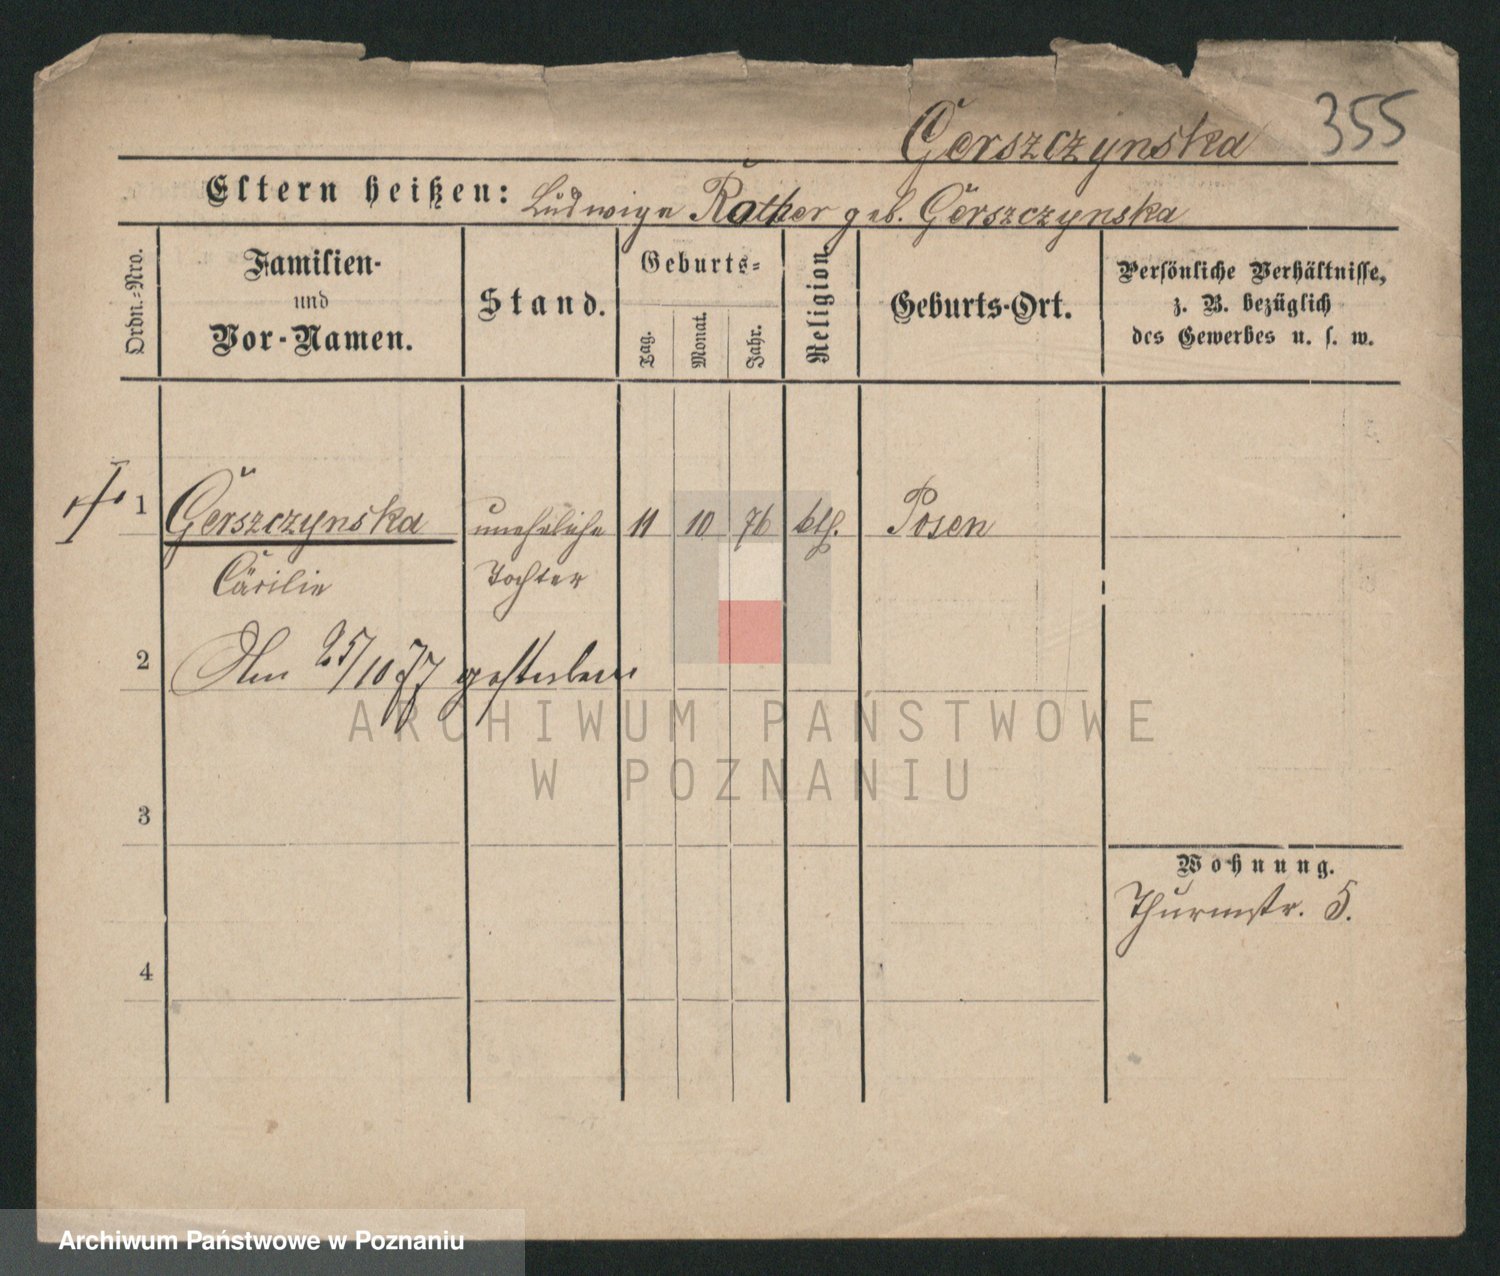 Gerszczynska 355
Eltern heißen: Ludwiga Rother geb. Gerszczynska
Ordn.-Nro.
Familien-
und
Vor-Namen.
Stand.
Geburts-
Tag.
Monat.
Jahr.
Religion.
Geburts-Ort.
Persönliche Verhältnisse,
z. B. bezüglich
des Gewerbes u. s. w.
1 Gerszczynska uneheliche 11 10 76 kth. Posen
Cäcilie Tochter
2 Am 25/10 77 gestorben
ARCHIWUM PAŃSTWOWE
W POZNANIU
3
Wohnung.
Thurmstr. 5.
4
Archiwum Państwowe w Poznaniu